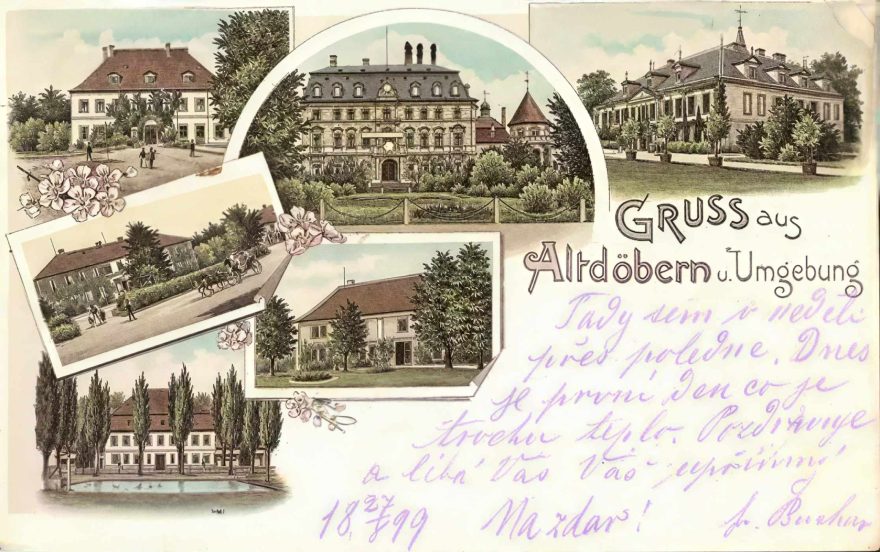 GRUSS aus
Altdöbern u. Umgebung
Tady sem v neděli
přes poledne. Dnes
je první den co je
trochu teplo. Pozdravuje
a líbá Vás Váš upřímný
18 27/8 99 Na zdar!
fr.